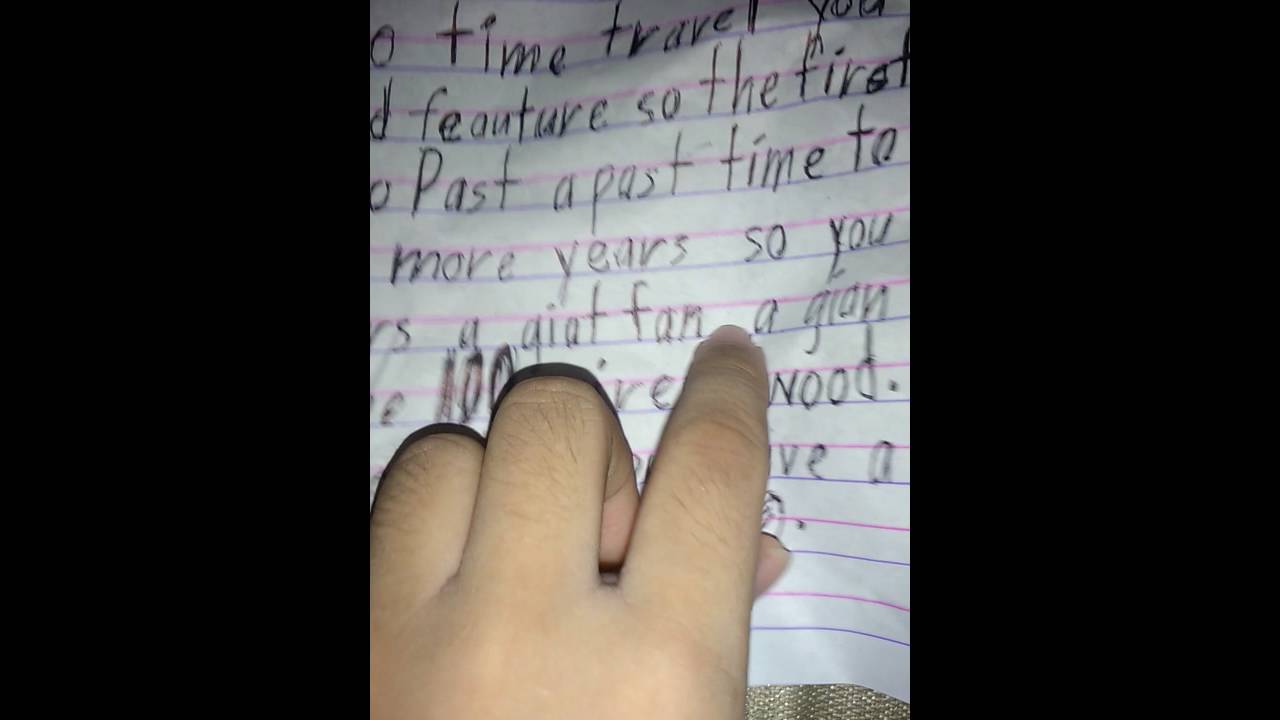 o time travel you
d feauture so the first
o Past a past time to
more years so you
rs a giat fan a gian
e 100 ire wood.
ve a